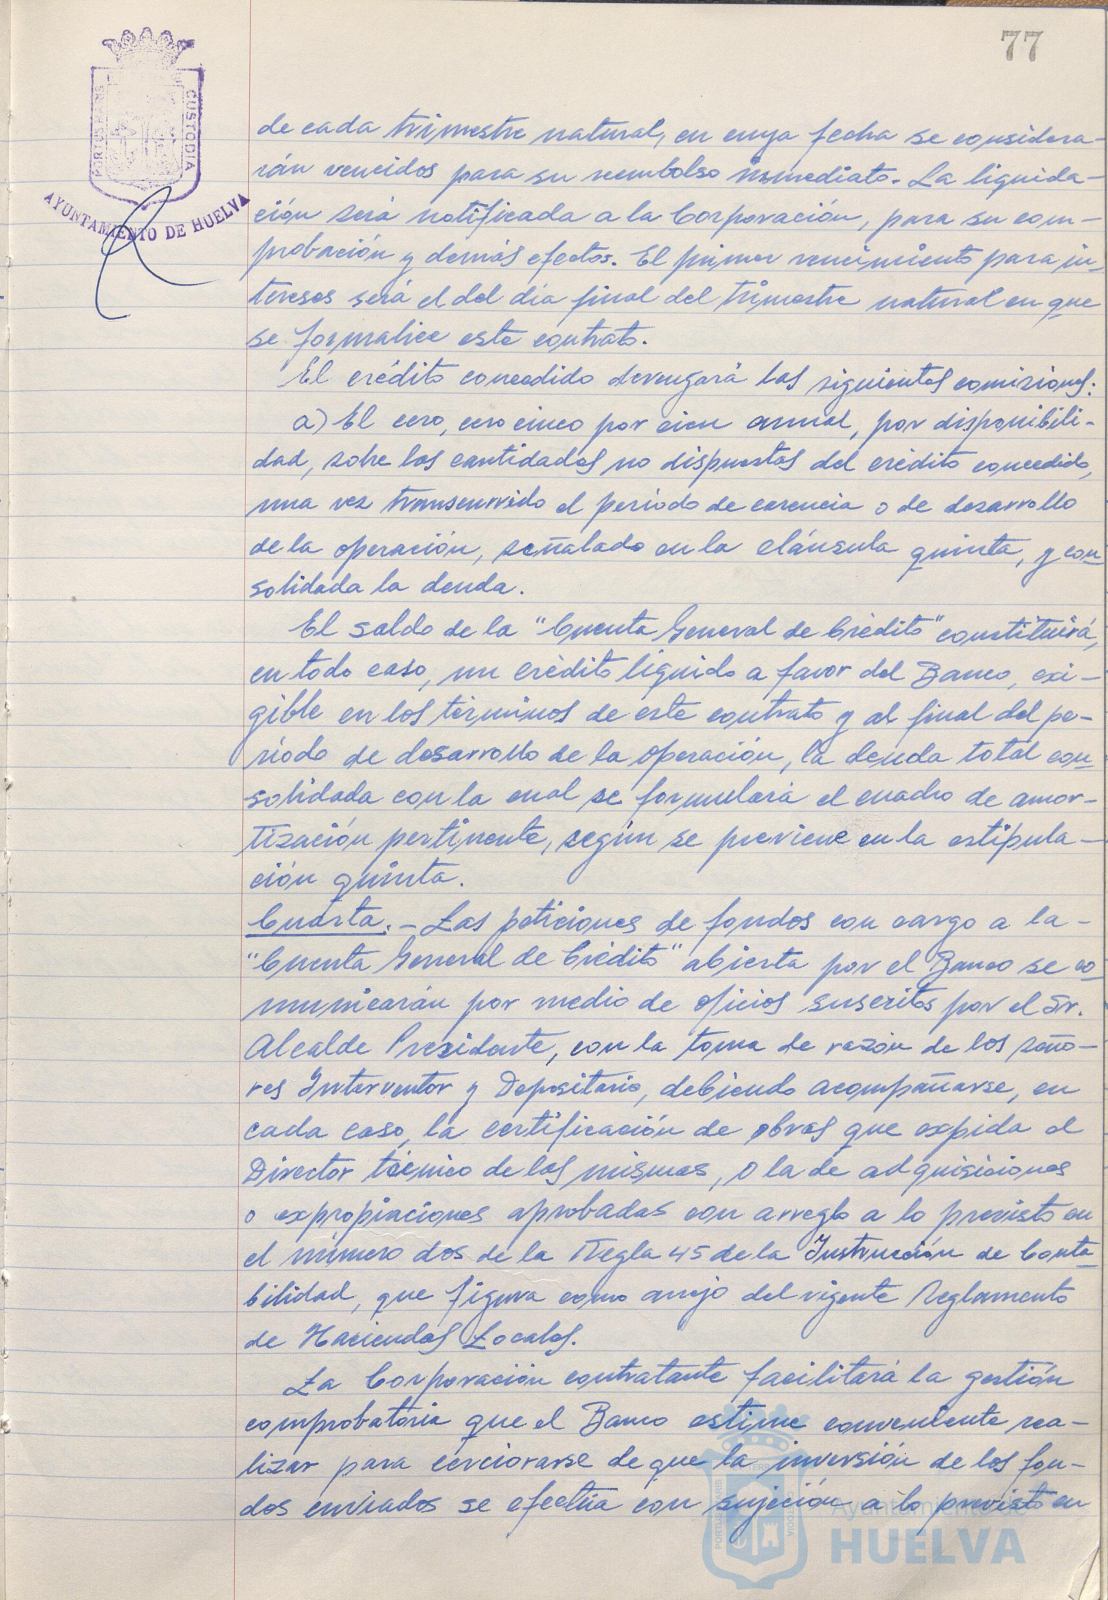 77
PORTUS MARIS
CUSTODIA
AYUNTAMIENTO DE HUELVA
de cada trimestre natural, en cuya fecha se considera-
rán vencidos para su reembolso inmediato. La liquida-
ción será notificada a la Corporación, para su com-
probación y demás efectos. El primer vencimiento para in-
tereses será el del día final del trimestre natural en que
se formalice este contrato.
El crédito concedido devengará las siguientes comisiones:
a) El cero, cero cinco por cien annal, por disponibili-
dad, sobre las cantidades no dispuestas del crédito concedido,
una vez transcurrido el período de carencia o de desarrollo
de la operación, señalado en la cláusula quinta, y con
solidada la deuda.
El saldo de la "Cuenta General de Crédito" constituirá,
en todo caso, un crédito líquido a favor del Banco, exi-
gible en los términos de este contrato y al final del pe-
ríodo de desarrollo de la operación, la deuda total con
solidada con la cual se formulará el cuadro de amor-
tización pertinente, según se previene en la estipula-
ción quinta.
Cuarta.- Las peticiones de fondos con cargo a la-
"Cuenta General de Crédito" abierta por el Banco se co
municarán por medio de oficios suscritos por el Sr.
Alcalde Presidente, con la toma de razón de los seño-
res Interventor y Depositario, debiendo acompañarse, en
cada caso, la certificación de obras que expida el
Director técnico de las mismas, o la de adquisiciones
o expropiaciones aprobadas con arreglo a lo previsto en
el número dos de la Regla 45 de la Instrucción de Conta
bilidad, que figura como anejo del vigente Reglamento
de Haciendas Locales.
La Corporación contratante facilitará la gestión
comprobatoria que el Banco estime conveniente rea-
lizar para cerciorarse de que la inversión de los fon-
dos enviados se efectúa con sujeción a lo previsto en
Ayuntamiento de
HUELVA